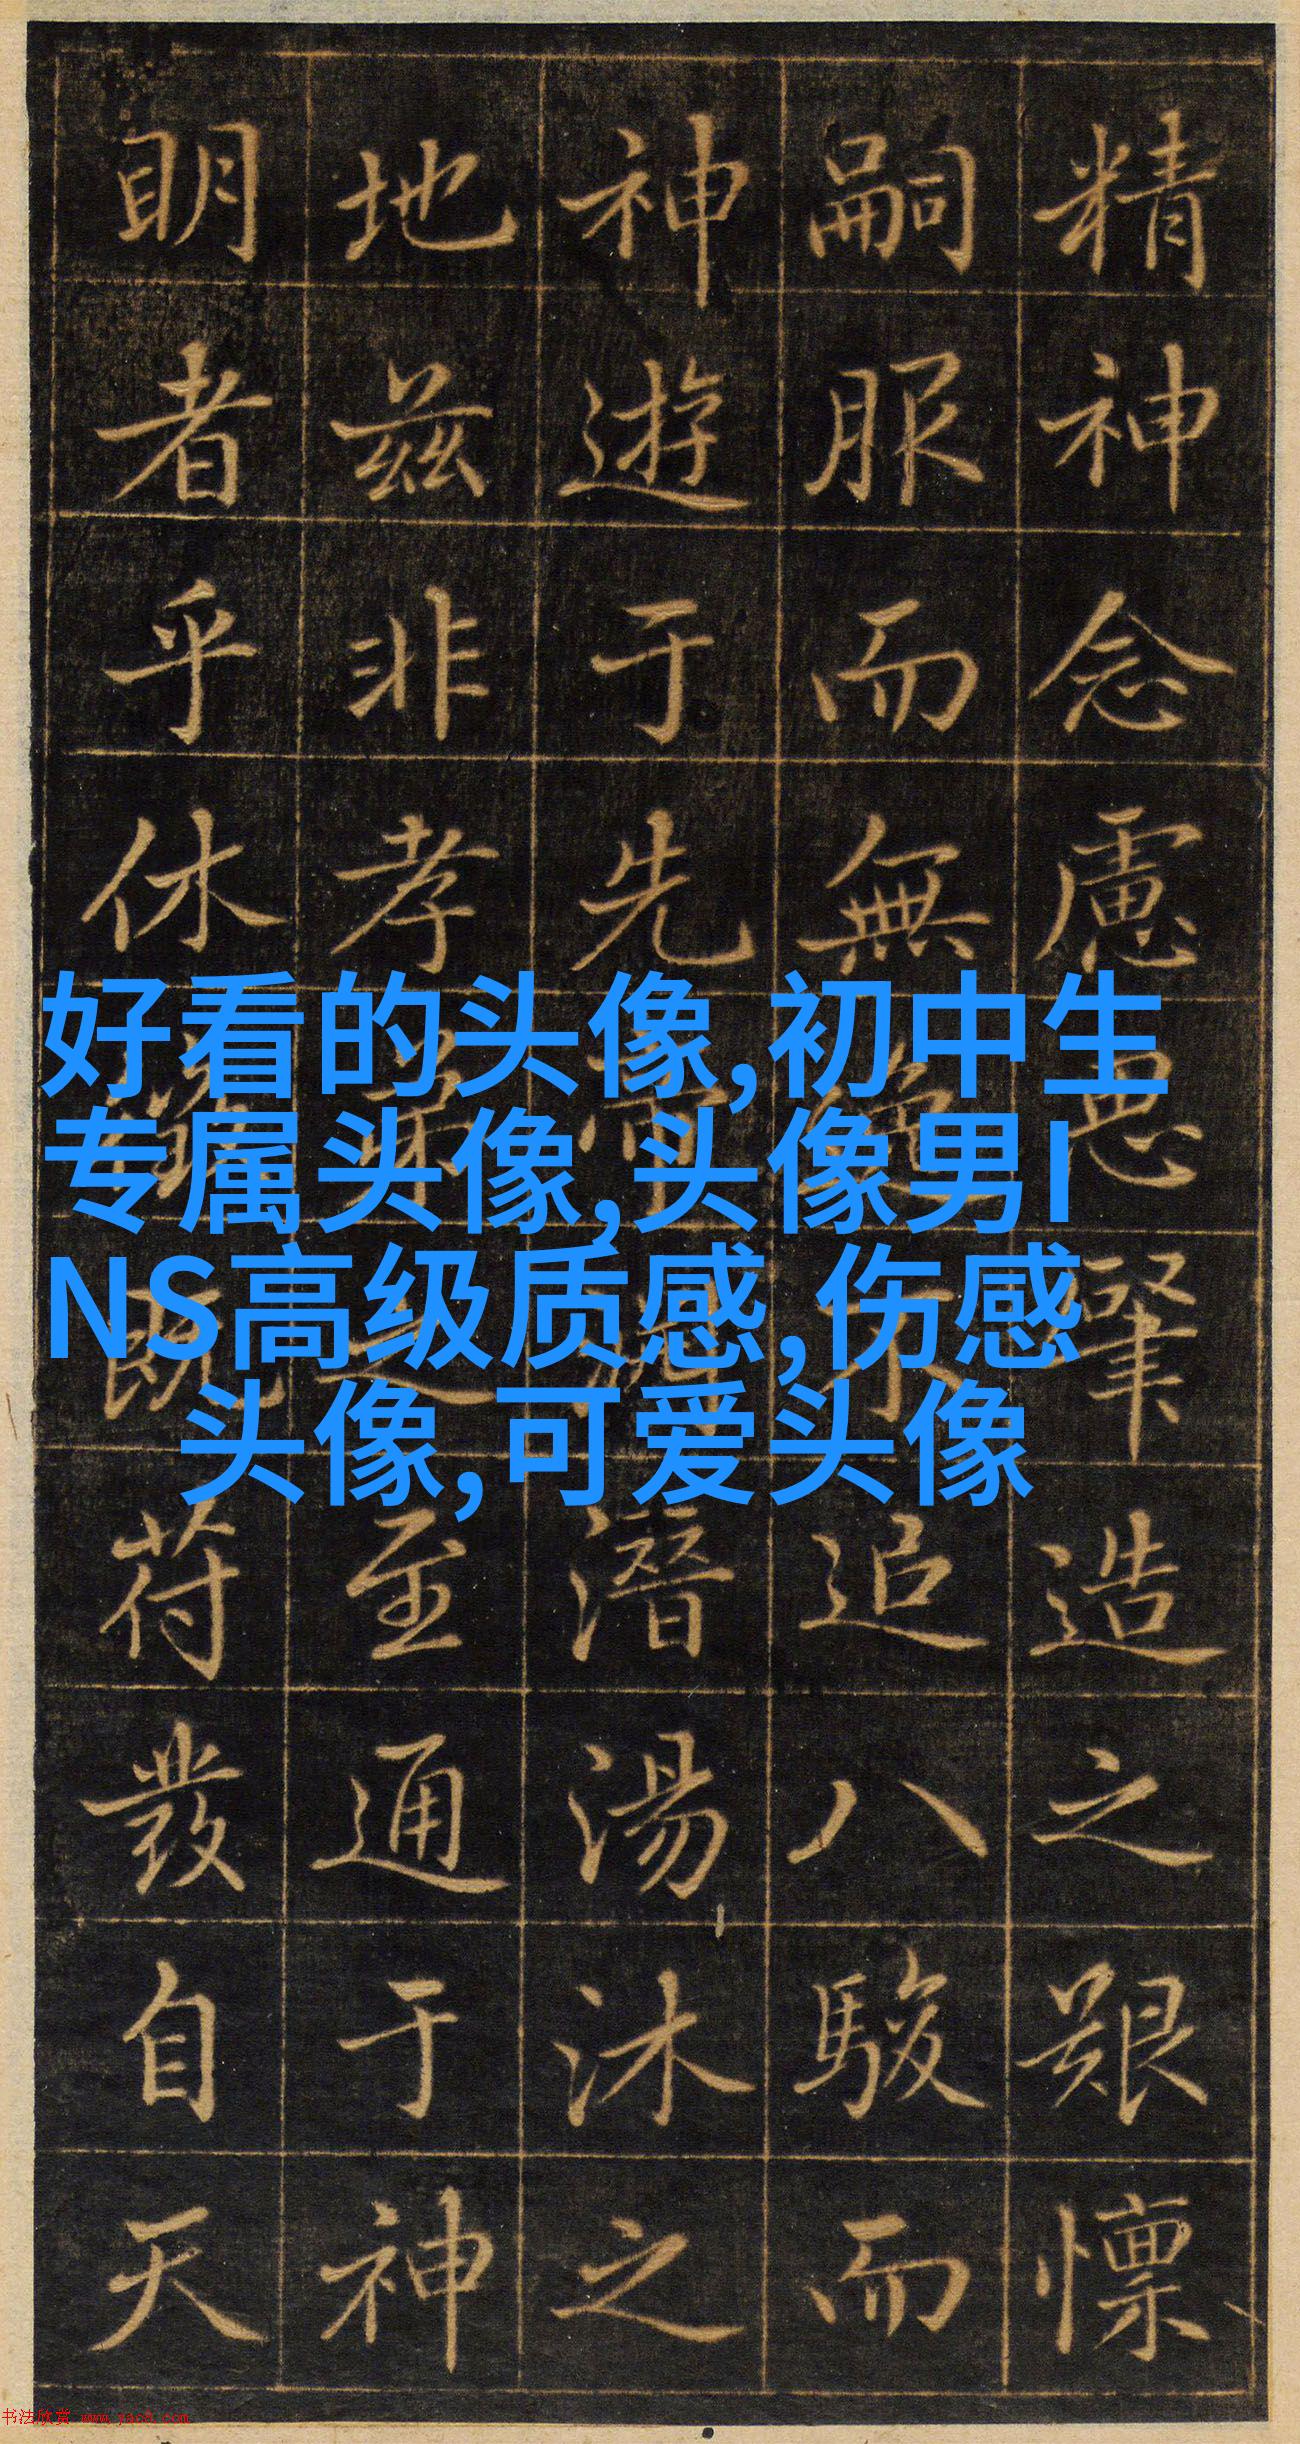 精神念慮思肇造之艱懍
嗣服而無逸不追八駿而
神遊于先潛湯沐之
地兹非孝弟之至通于神
明者乎休徵既符發自天
好看的头像,初中生
专属头像,头像男I
NS高级质感,伤感
头像,可爱头像
书法欣赏 www.yac8.com